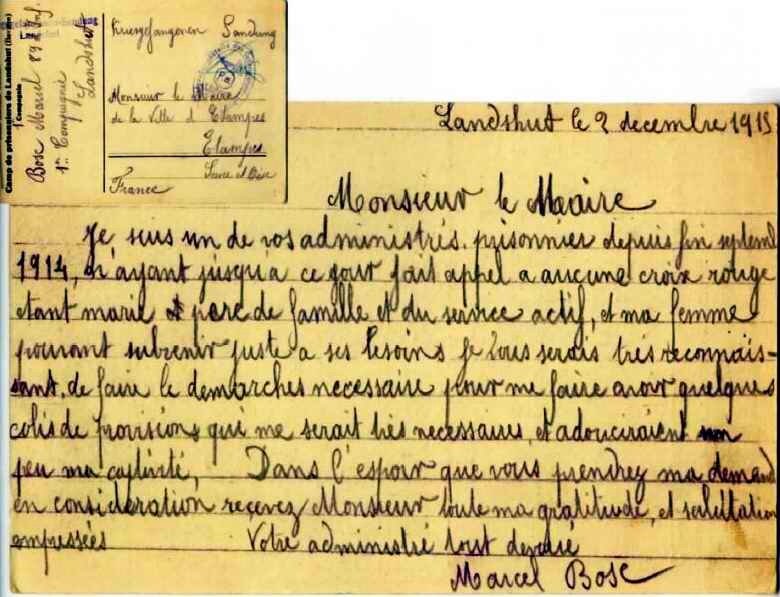 Camp de prisonniers de Landshut (Bavière)
1re Compagnie
Bosc Marcel 89e Inf.
1re Compagnie
Landshut
Kriesgefangenen Sendung
Monsieur le Maire
de la Ville d Etampes
Etampes
Seine et Oise
France
Landshut le 2 decembre 1915
Monsieur le Maire
Je suis un de vos administrés. prisonnier depuis fin septemb
1914, n'ayant jusqu'a ce jour fait appel a aucune croix rouge
etant marié et pere de famille et du service actif, et ma femme
pouvant subvenir juste a ses besoins je vous serais très reconnais-
sant. de faire le demarches necessaire pour me faire avoir quelques
colis de provisions qui me serait très necessaires, et adouciraient un
peu ma captivité, Dans l'espoir que vous prendrez ma demand
en consideration recevez Monsieur toute ma gratitude, et salutation
empressées Votre administré tout devoué
Marcel Bosc